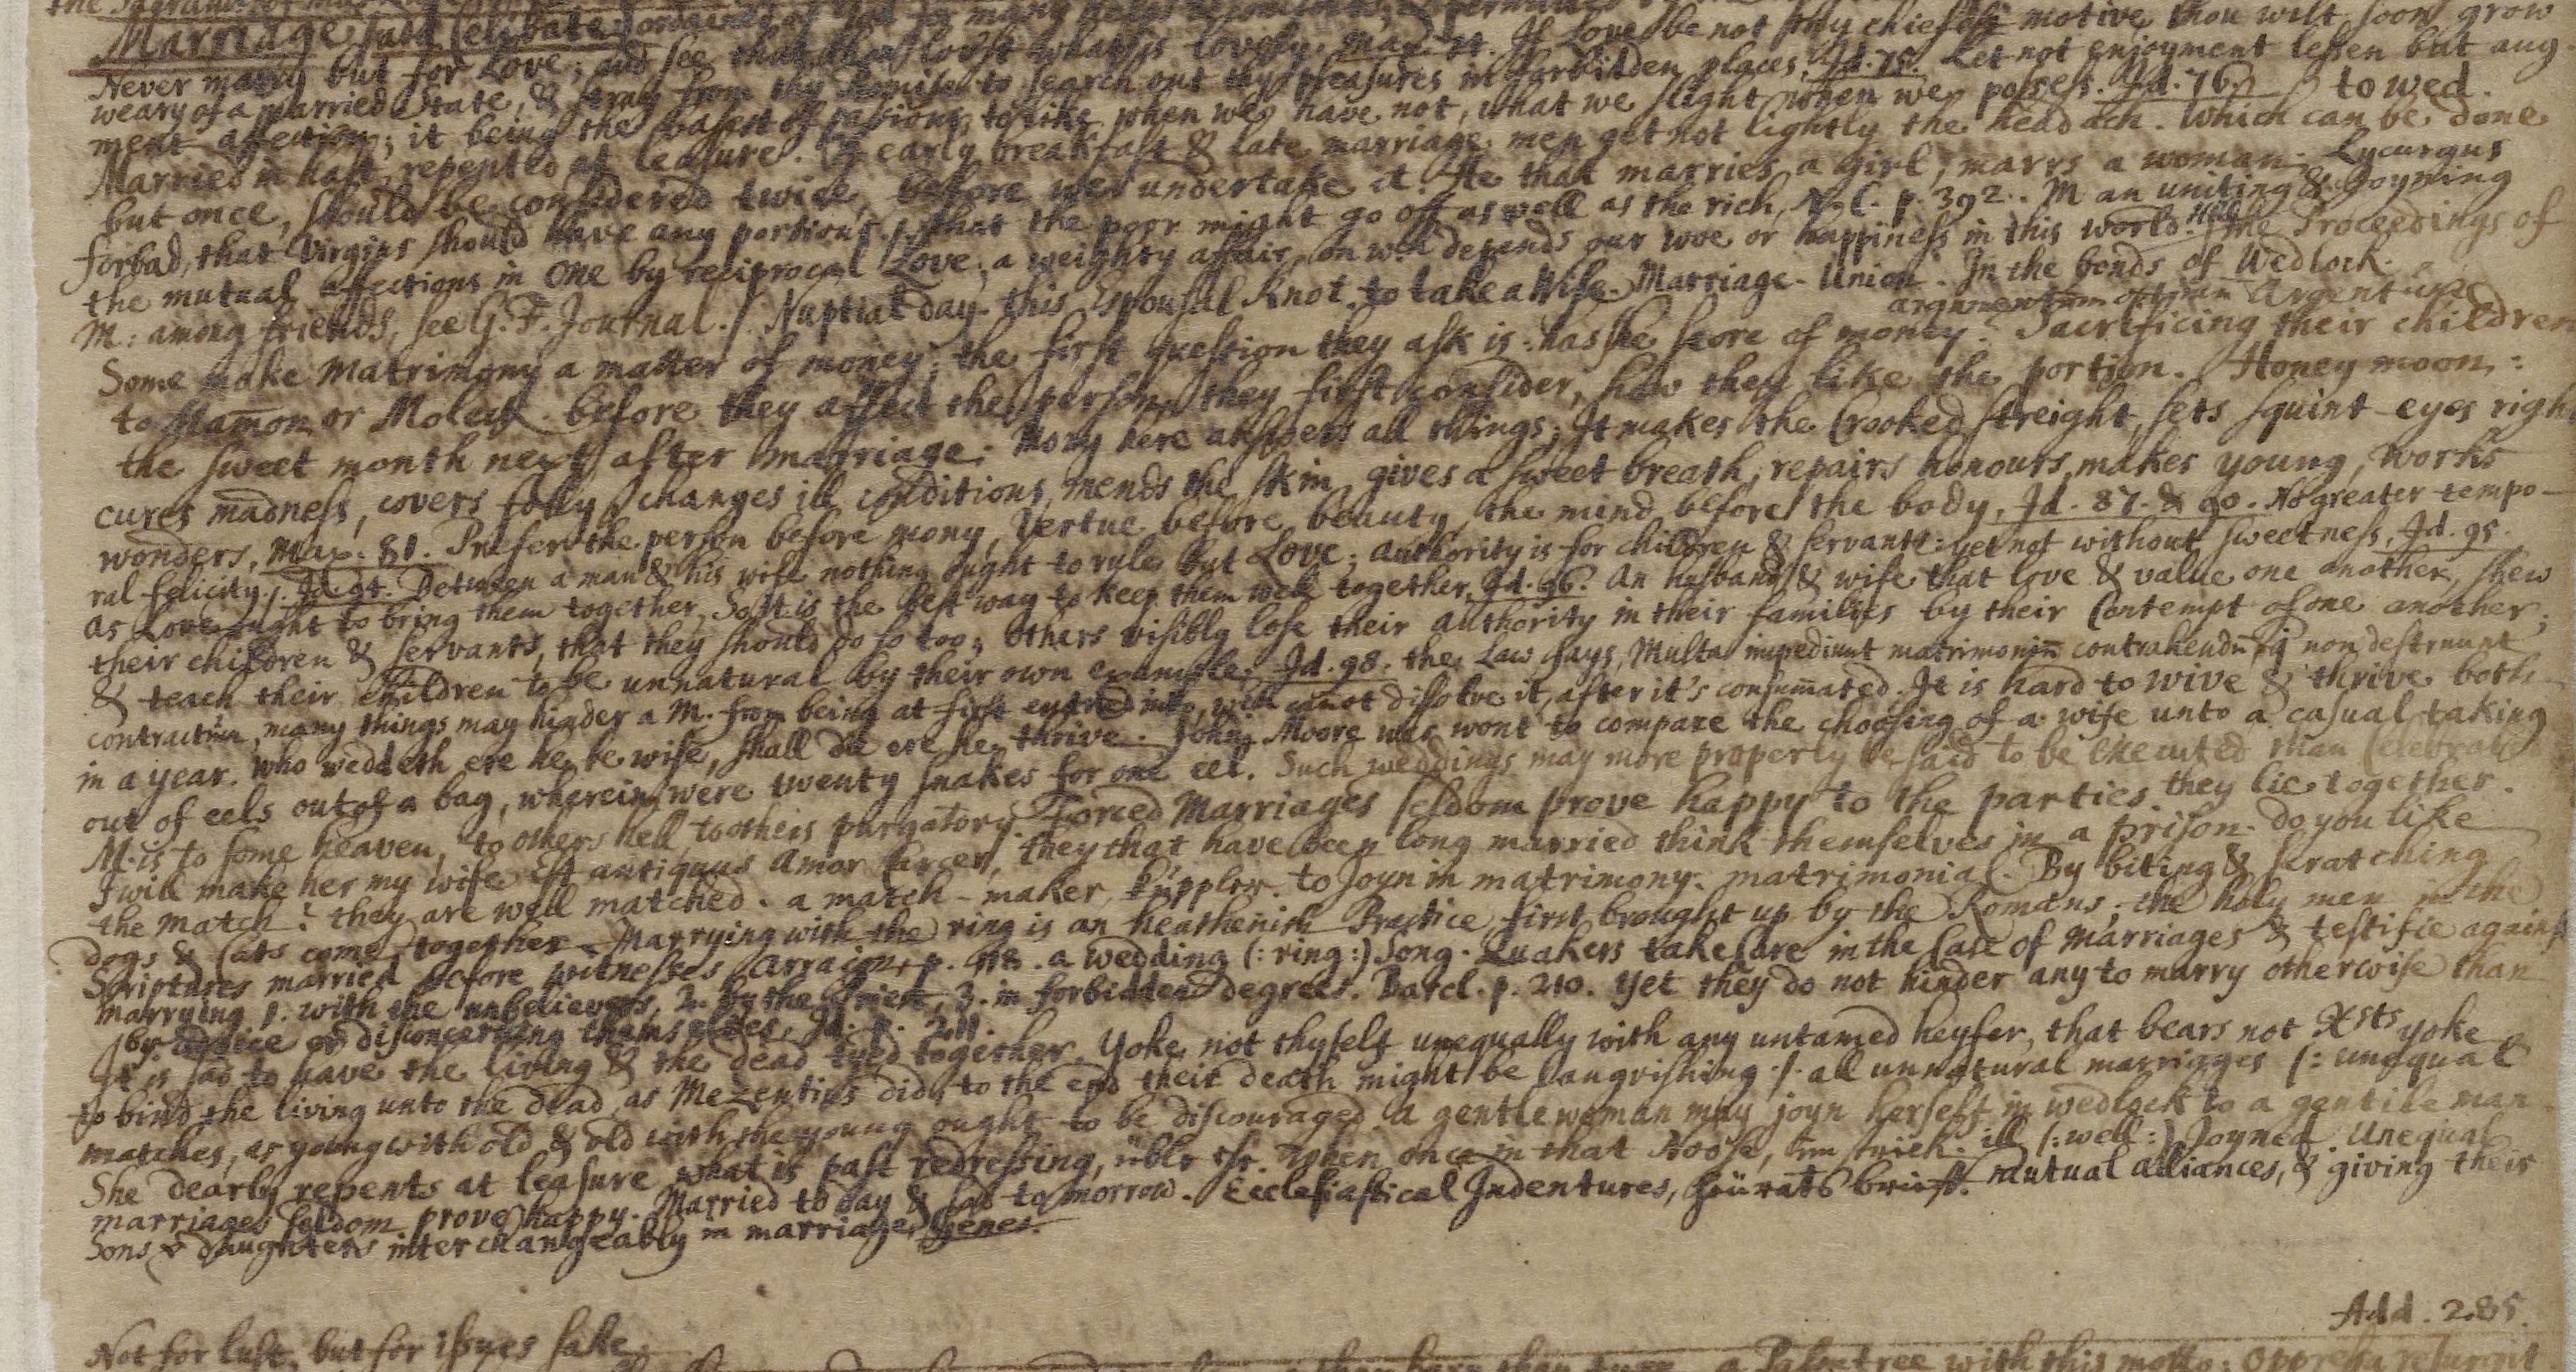 Marriage and Celibate ordained of God for many
Never marry but for Love; and see that thou lov'st what is lovely. Max. 74. If Love be not thy chiefest motive, thou wilt soon grow
weary of a married State, & stray from thy Promise to search out thy pleasures in forbidden places, Id. 75. Let not enjoyment lessen but aug
ment affection; it being the basest of passions, to like when we have not, what we slight when we possess. Id. 76. to wed.
Married in hast, repented at leasure. Of early breakfast & late marriage men get not lightly the head ach. Which can be done
but once, should be considered twice, before we undertake it. He that marries a girl, marrs a woman. Lycurgus
forbad, that Virgins should have any portions, that the poor might go off as well as the rich, N. C. p. 392. M an uniting & Joyning
the mutual affections in one by reciprocal Love, a weighty affair, on wch depends our woe or happiness in this world. The Proceedings of
M: among friends, see G. F. Journal. Nuptial day. this Espousal Knot. to take a Wife. Marriage-Union. In the bonds of Wedlock.
argumentum optimum Argentum
Some make Matrimony a matter of money; the first question they ask is: has she store of money? Sacrificing their children
to Mamon or Moleck. before they affect the person, they first consider, how they like the portion. Honey moon:
the sweet month next after marriage. Mony here answers all things; It makes the Crooked streight, sets squint-eyes righ
cures madness, covers folly, changes ill conditions, mends the skin, gives a sweet breath, repairs honours, makes young, works
wonders, Max. 81. Prefer the person before mony, Vertue before beauty, the mind before the body, Id. 87. & 90. No greater tempo-
ral felicity. Id. 94. Between a man & his wife nothing ought to rule but Love; authority is for children & servants: yet not without sweetness, Id. 95.
As Love ought to bring them together, So it is the best way to keep them well together, Id. 96. An husband & wife that love & value one another, shew
their children & servants, that they should do so too; Others visibly lose their authority in their families by their Contempt of one another;
& teach their children to be unnatural by their own example, Id. 98. the Law says, Multa impediunt matrimoniũ contrahendũ, q̃ non destruunt
contractum, many things may hinder a M. from being at first entred into, wch cannot dissolve it, after it's consum̃ated. It is hard to wive & thrive both
in a year. Who weddeth ere he be wise, shall die ere he thrive. John Moore was wont to compare the choosing of a wife unto a casual taking
out of eels out of a bag, wherein were twenty snakes for one eel. Such weddings may more properly be said to be executed than Celebrated
M. is to some heaven, to others hell, to others purgatory. Forced Marriages seldom prove happy to the parties. they lie together.
I will make her my wife. Est antiquus Amor Carcer, they that have been long married think themselves in a prison. do you like
the match? they are well matched. a match-maker, küppler. to Joyn in matrimony. matrimonial. By biting & scratching
dogs & Cats come together. Marrying with the ring is an heathenish Practice, first brought up by the Romans; the holy men in the
Scriptures married before witnesses. a wedding (: ring:) Song. Quakers take Care in the Case of Marriages & testifie against
marrying 1. with the unbelievers, 2. by the Priest, 3. in forbidden degrees. Barcl. p. 210. Yet they do not hinder any to marry otherwise than
by advice or disconcerning themselves, Id. p. 211.
It is sad to have the living & the dead tyed together. Yoke not thyself unequally with any untamed heyfer, that bears not Xsts yoke
to bind the living unto the dead, as Mezentius did, to the end their death might be Languishing. all unnatural marriages (: unequal
matches, as young with old & old with the young ought to be discouraged. a gentlewoman may joyn herself in wedlock to a gentile man
She dearly repents at leasure what is past redressing. When once in that Noose, ill (:well:) Joyned. Unequal
marriages seldom prove happy. Married to day & sad to morrow. Ecclesiastical Indentures, Heürats brieff. Mutual alliances, & giving their
Sons & daughters interchangeably in marriage, Genes.
Add. 285.
Not for lust, but for issues sake.
a Palmtree with this motto: